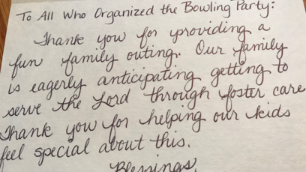 To All Who Organized the Bowling Party:
Thank you for providing a
fun family outing. Our family
is eagerly anticipating getting to
serve the Lord through foster care
Thank you for helping our kids
feel special about this.
Blessings,